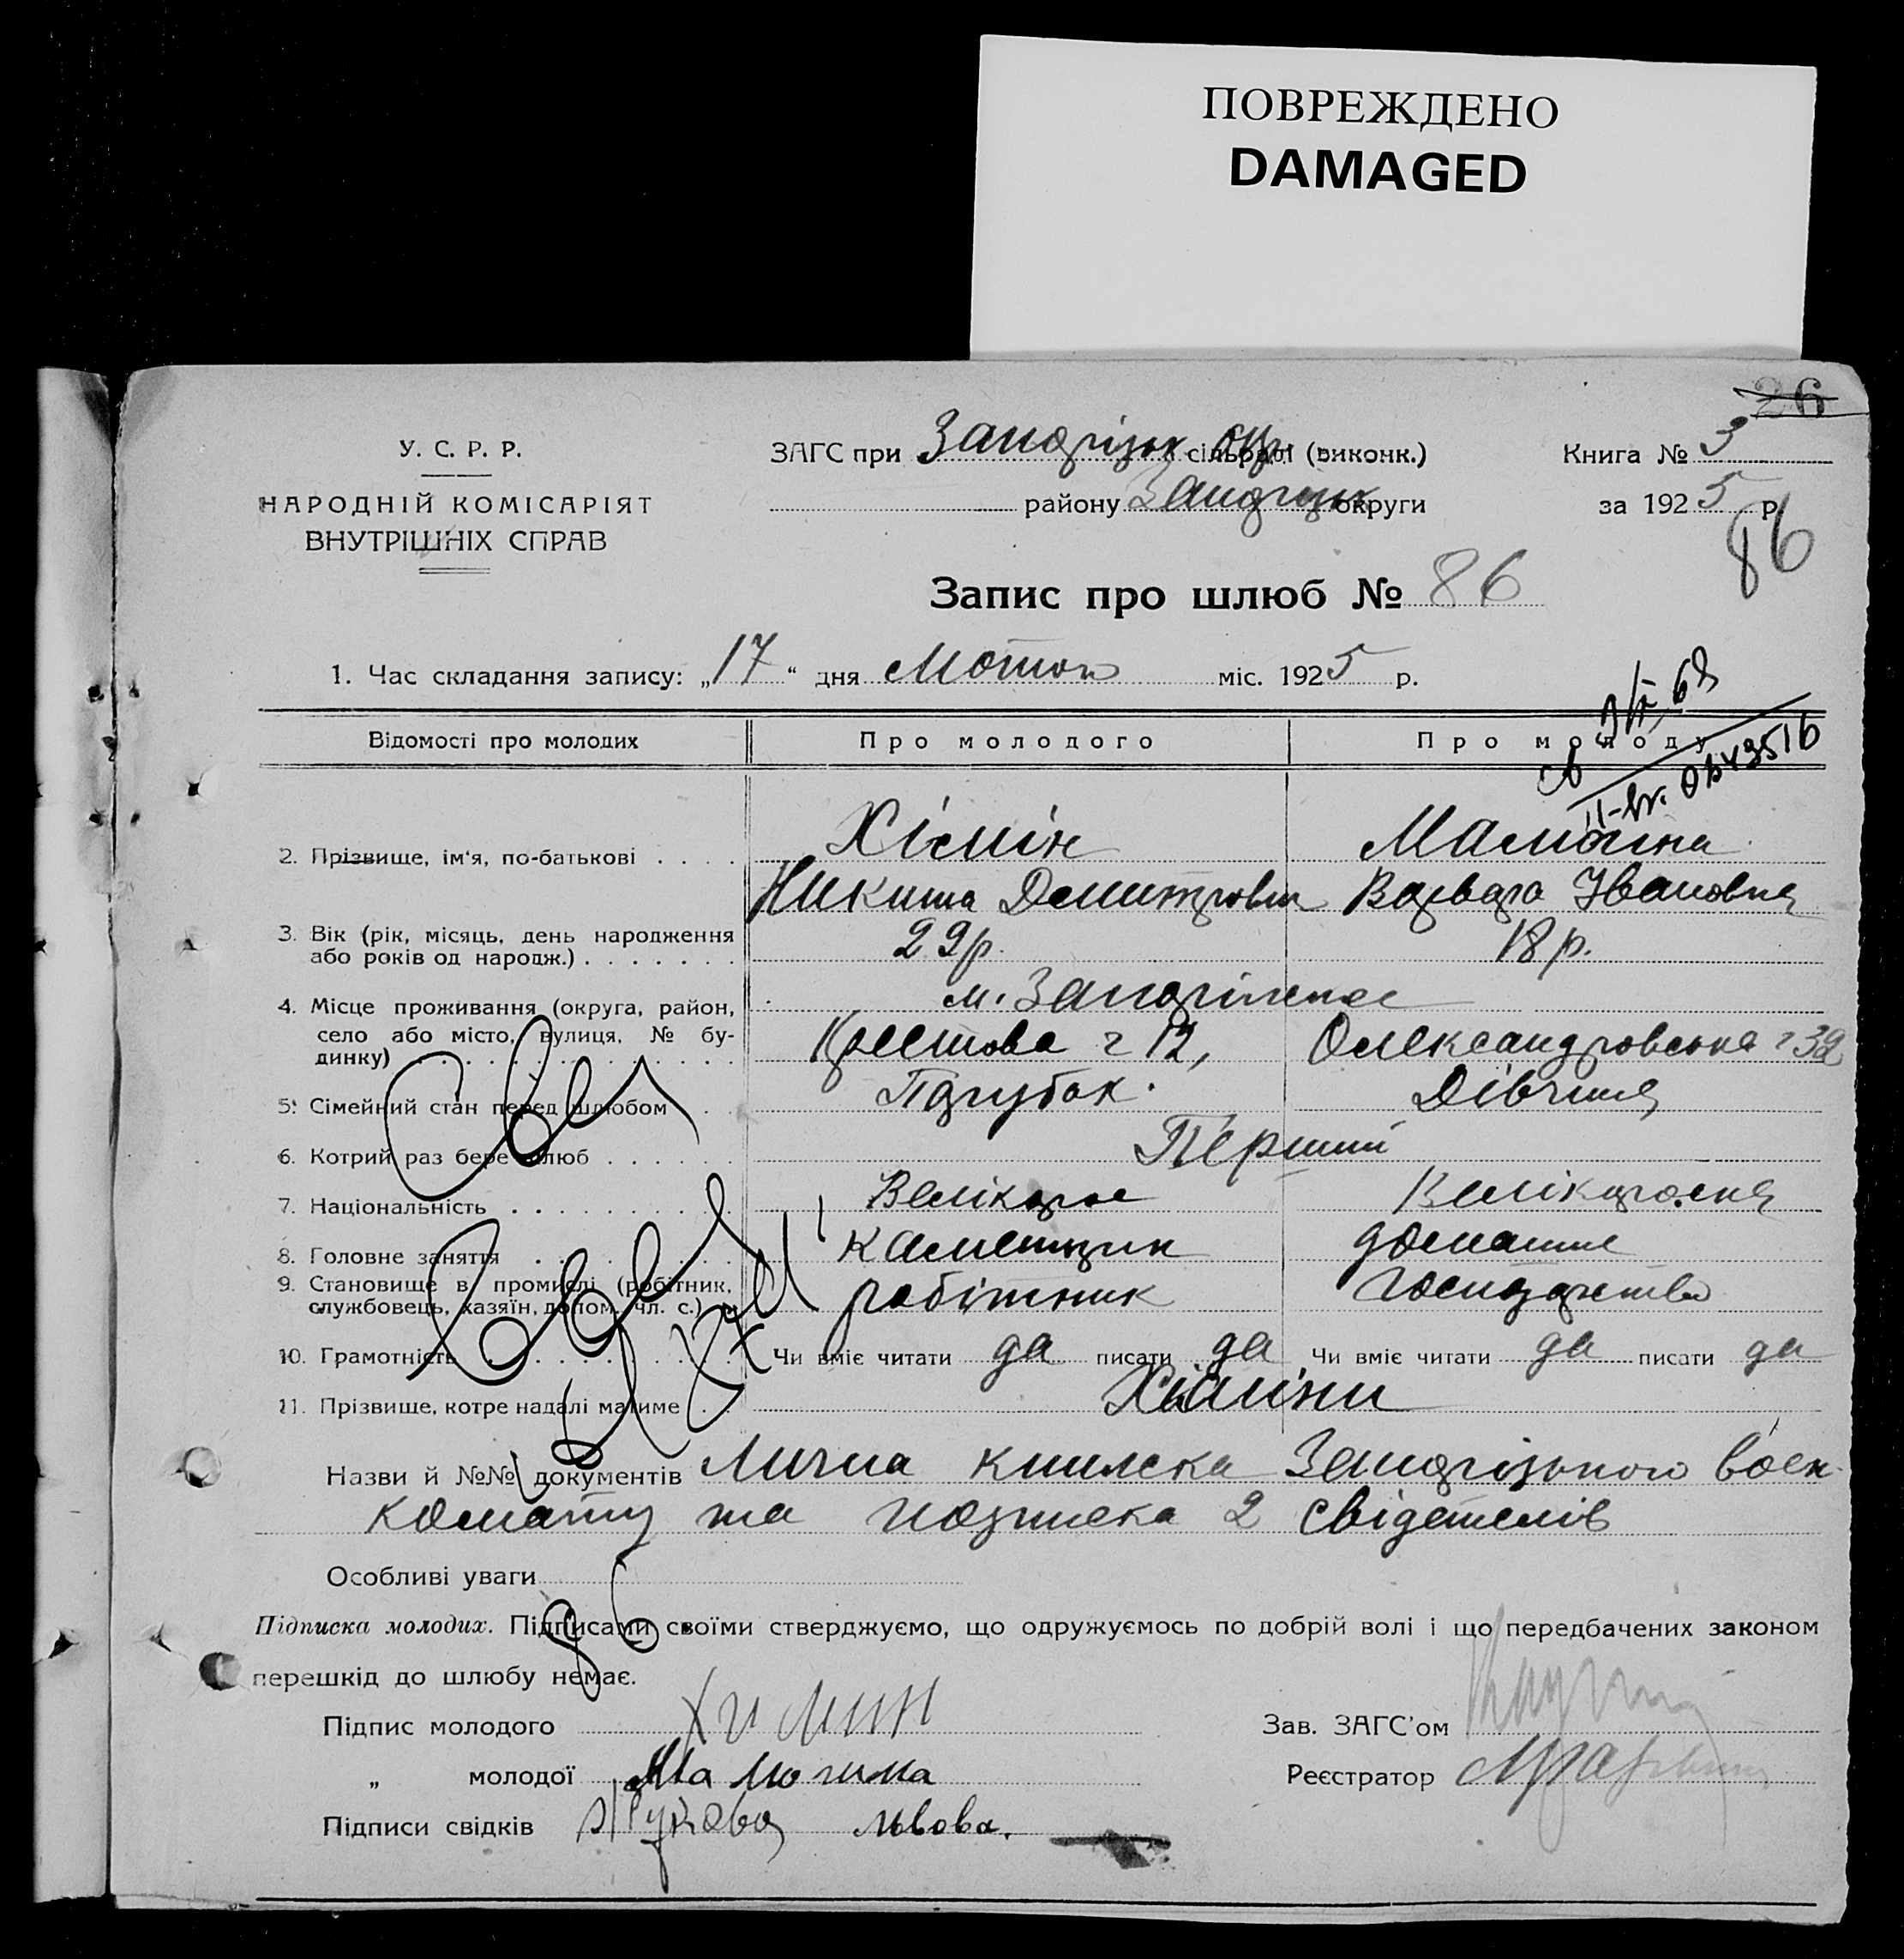 ПОВРЕЖДЕНО
DAMAGED
26
У. С. Р. Р.
НАРОДНІЙ КОМІСАРІЯТ
ВНУТРІШНІХ СПРАВ
ЗАГС при сільраді (виконк.)
району округи
Книга № 3
за 1925 р.
86
Запис про шлюб № 86
1. Час складання запису: „17" дня Лютого міс. 1925 р.
Відомості про молодих Про молодого Про молоду
2. Прізвище, ім'я, по-батькові . . . . Хімін
Никита Варвара Івановна
3. Вік (рік, місяць, день народження або років од народж.) . . . . . . . 29 р. 18 р.
4. Місце проживання (округа, район, село або місто, вулиця, № будинку) м. Запоріжжє
Крестова ч 12, Олександровська ч 32
5. Сімейний стан перед шлюбом . . Парубок. Дівчина
6. Котрий раз бере шлюб . . . . . . Перший
7. Національність . . . . . . . . . Велікорос Велікоросия
8. Головне заняття . . . . . . . . . каменщик домашнє
9. Становище в промислі (робітник, службовець, хазяїн, допом. чл. с.) робітник господарство
10. Грамотність . . . . . . . . . Чи вміє читати да писати да Чи вміє читати да писати да
11. Прізвище, котре надалі матиме . . Хіміни
Назви й №№ документів Лична книжка Запорізького воен
комату та подписка 2 свідетелів
Особливі уваги
86
Підписка молодих. Підписами своїми стверджуємо, що одружуємось по добрій волі і що передбачених законом
перешкід до шлюбу немає.
Підпис молодого Химин
Зав. ЗАГС'ом
„ молодої
Реєстратор
Підписи свідків Львова.